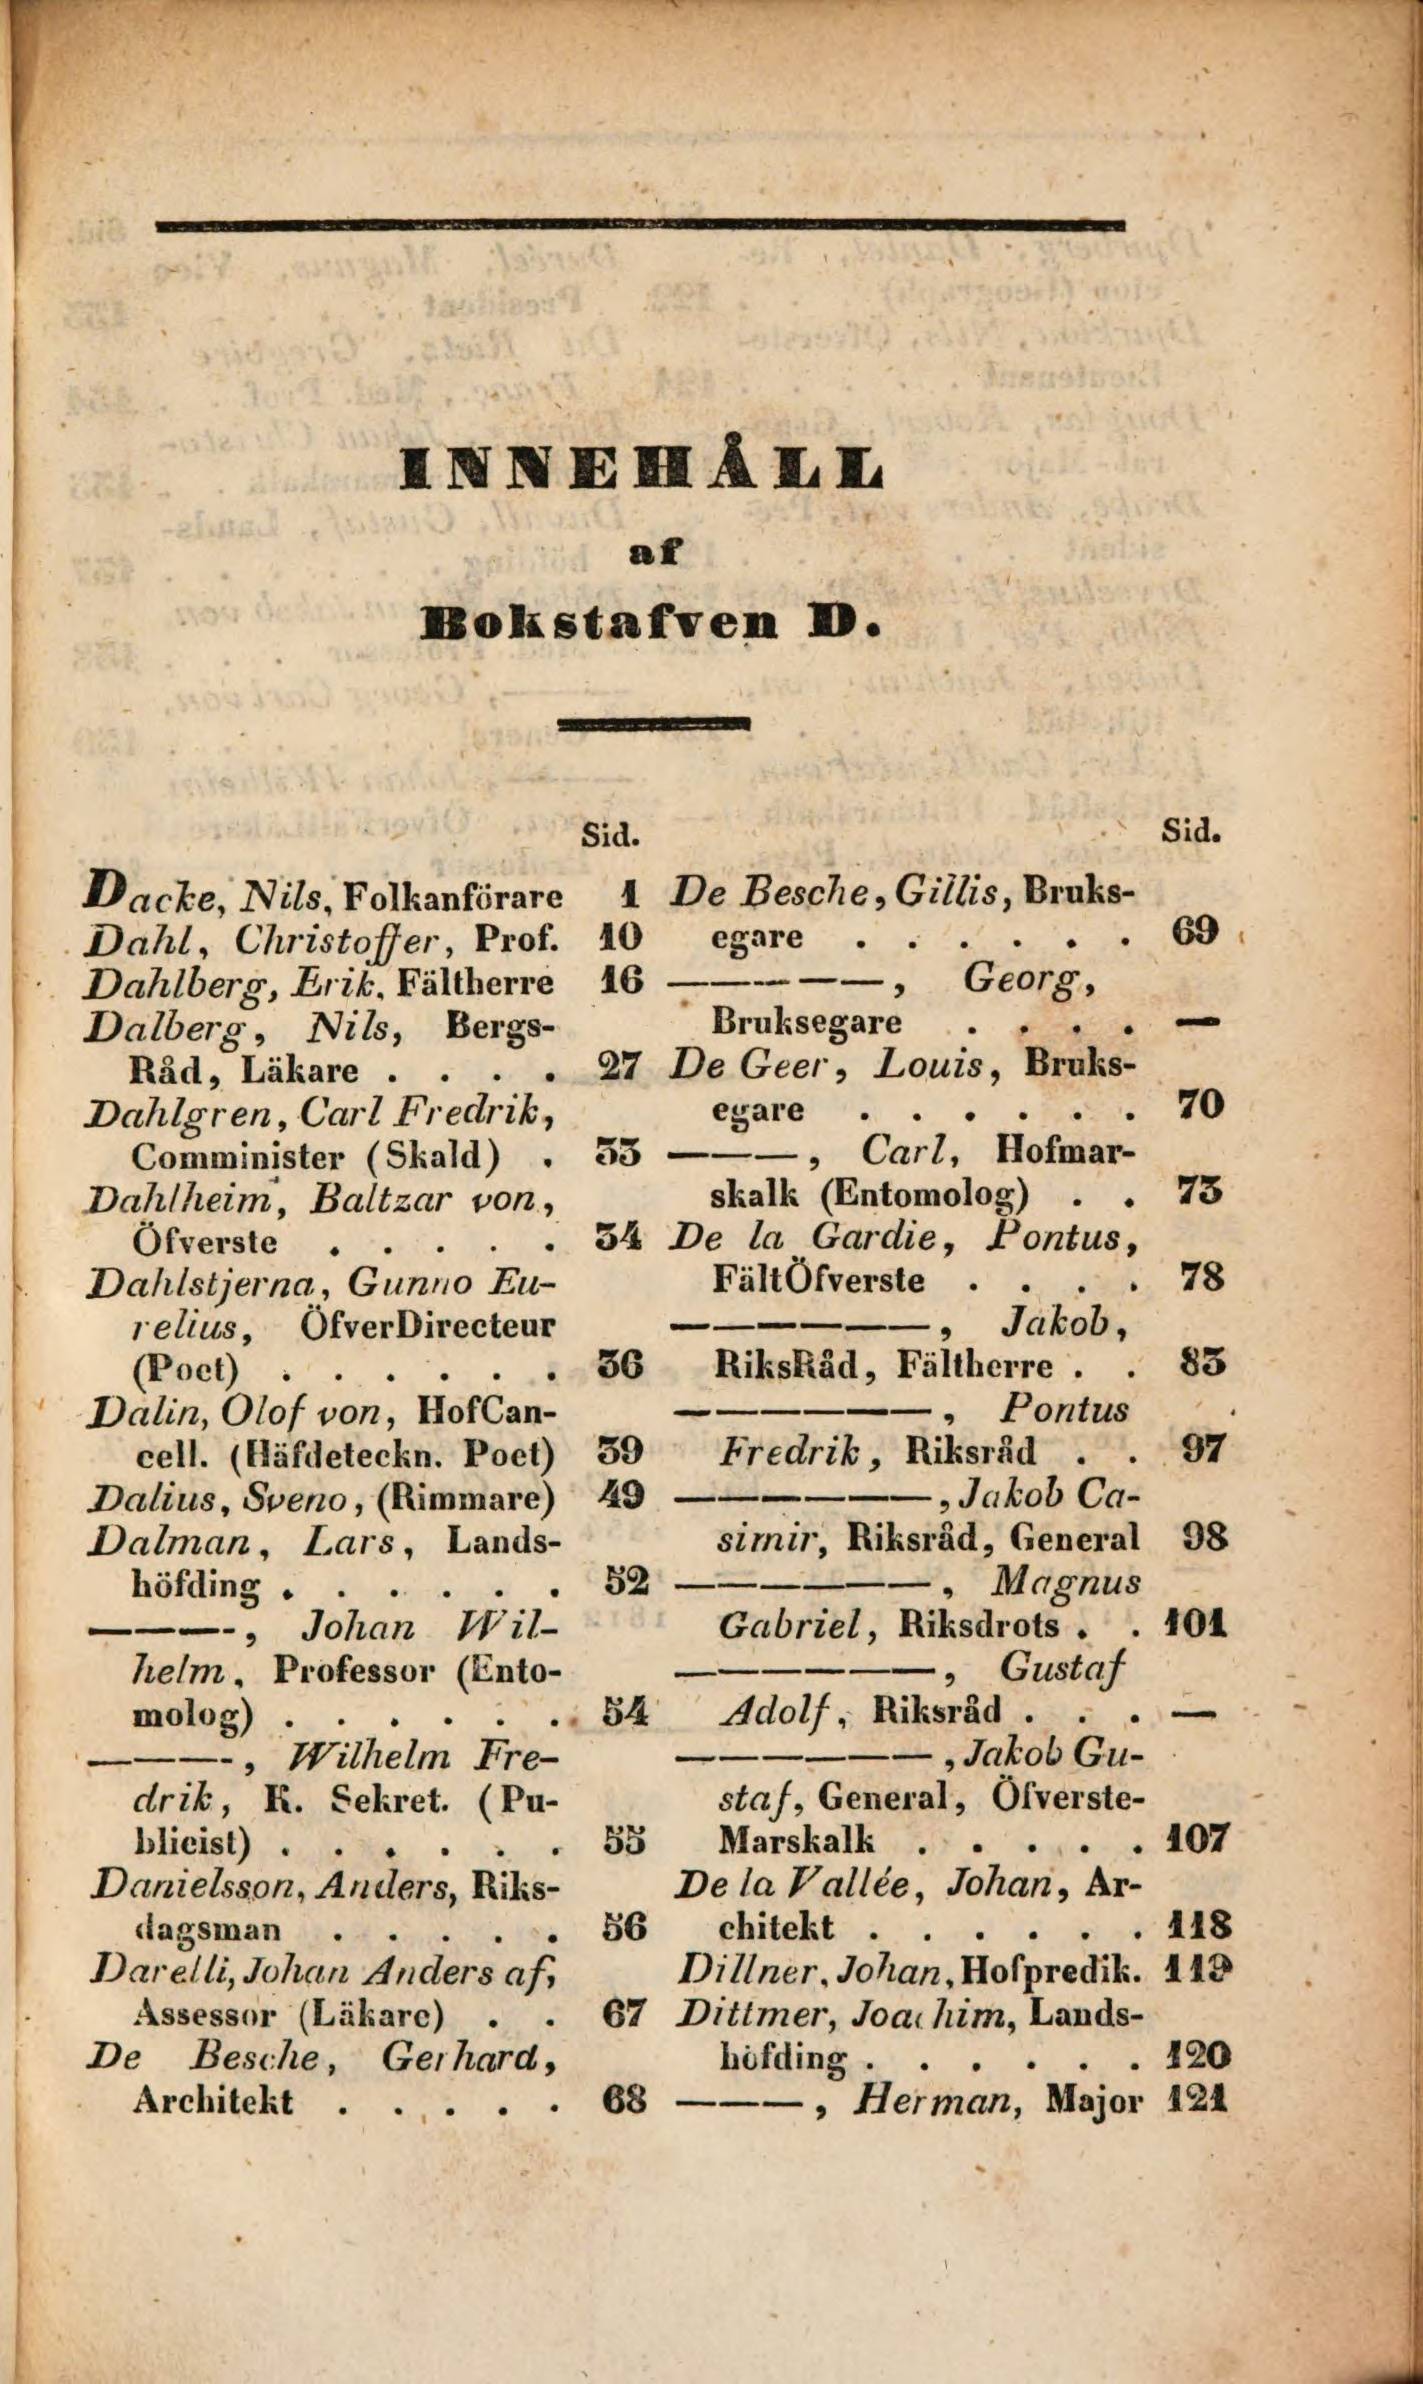 INNEHÅLL
af
Bokstafven D.
Sid.
Dacke, Nils, Folkanförare 1
Dahl, Christoffer, Prof. 10
Dahlberg, Erik, Fältherre 16
Dalberg, Nils, Bergs-
Råd, Läkare . . . . 27
Dahlgren, Carl Fredrik,
Comminister (Skald) . 33
Dahlheim, Baltzar von,
Öfverste . . . . . 34
Dahlstjerna, Gunno Eu-
relius, ÖfverDirecteur
(Poet) . . . . . . 36
Dalin, Olof von, HofCan-
cell. (Häfdeteckn. Poet) 39
Dalius, Sveno, (Rimmare) 49
Dalman, Lars, Lands-
höfding . . . . . . 52
————, Johan Wil-
helm, Professor (Ento-
molog) . . . . . . 54
————, Wilhelm Fre-
drik, K. Sekret. (Pu-
blicist) . . . . . . 55
Danielsson, Anders, Riks-
dagsman . . . . . 56
Darelli, Johan Anders af,
Assessor (Läkare) . . 67
De Besche, Gerhard,
Architekt . . . . . 68
Sid.
De Besche, Gillis, Bruks-
egare . . . . . . 69
—————, Georg,
Bruksegare . . . . —
De Geer, Louis, Bruks-
egare . . . . . . 70
———, Carl, Hofmar-
skalk (Entomolog) . . 73
De la Gardie, Pontus,
FältÖfverste . . . . 78
——————, Jakob,
RiksRåd, Fältherre . . 83
——————, Pontus
Fredrik, Riksråd . . 97
——————, Jakob Ca-
simir, Riksråd, General 98
——————, Magnus
Gabriel, Riksdrots . . 101
——————, Gustaf
Adolf, Riksråd . . . —
——————, Jakob Gu-
staf, General, Öfverste-
Marskalk . . . . . 107
De la Vallée, Johan, Ar-
chitekt . . . . . . 118
Dillner, Johan, Hofpredik. 119
Dittmer, Joachim, Lands-
höfding . . . . . . 120
———, Herman, Major 121